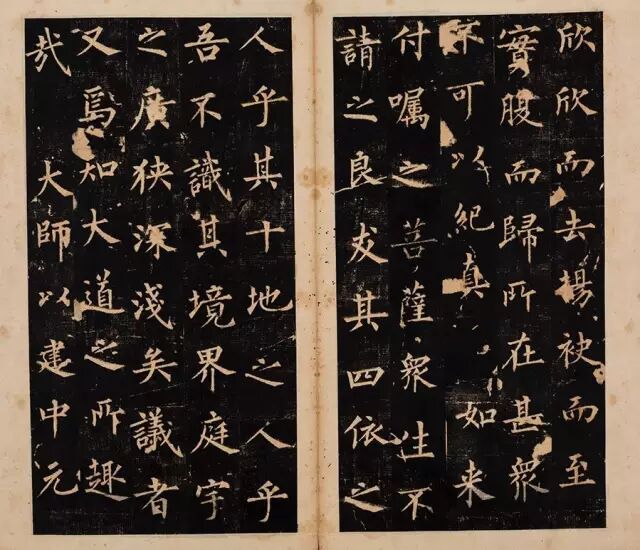 欣欣而去揚袂而至
實腹而歸所在甚衆
不可以紀真 如来
付囑之菩薩衆生不
請之良友其四依之
人乎其十地之人乎
吾不識其境界庭宇
之廣狹深淺矣議者
又焉知大道之所趣
哉 大師以建中元